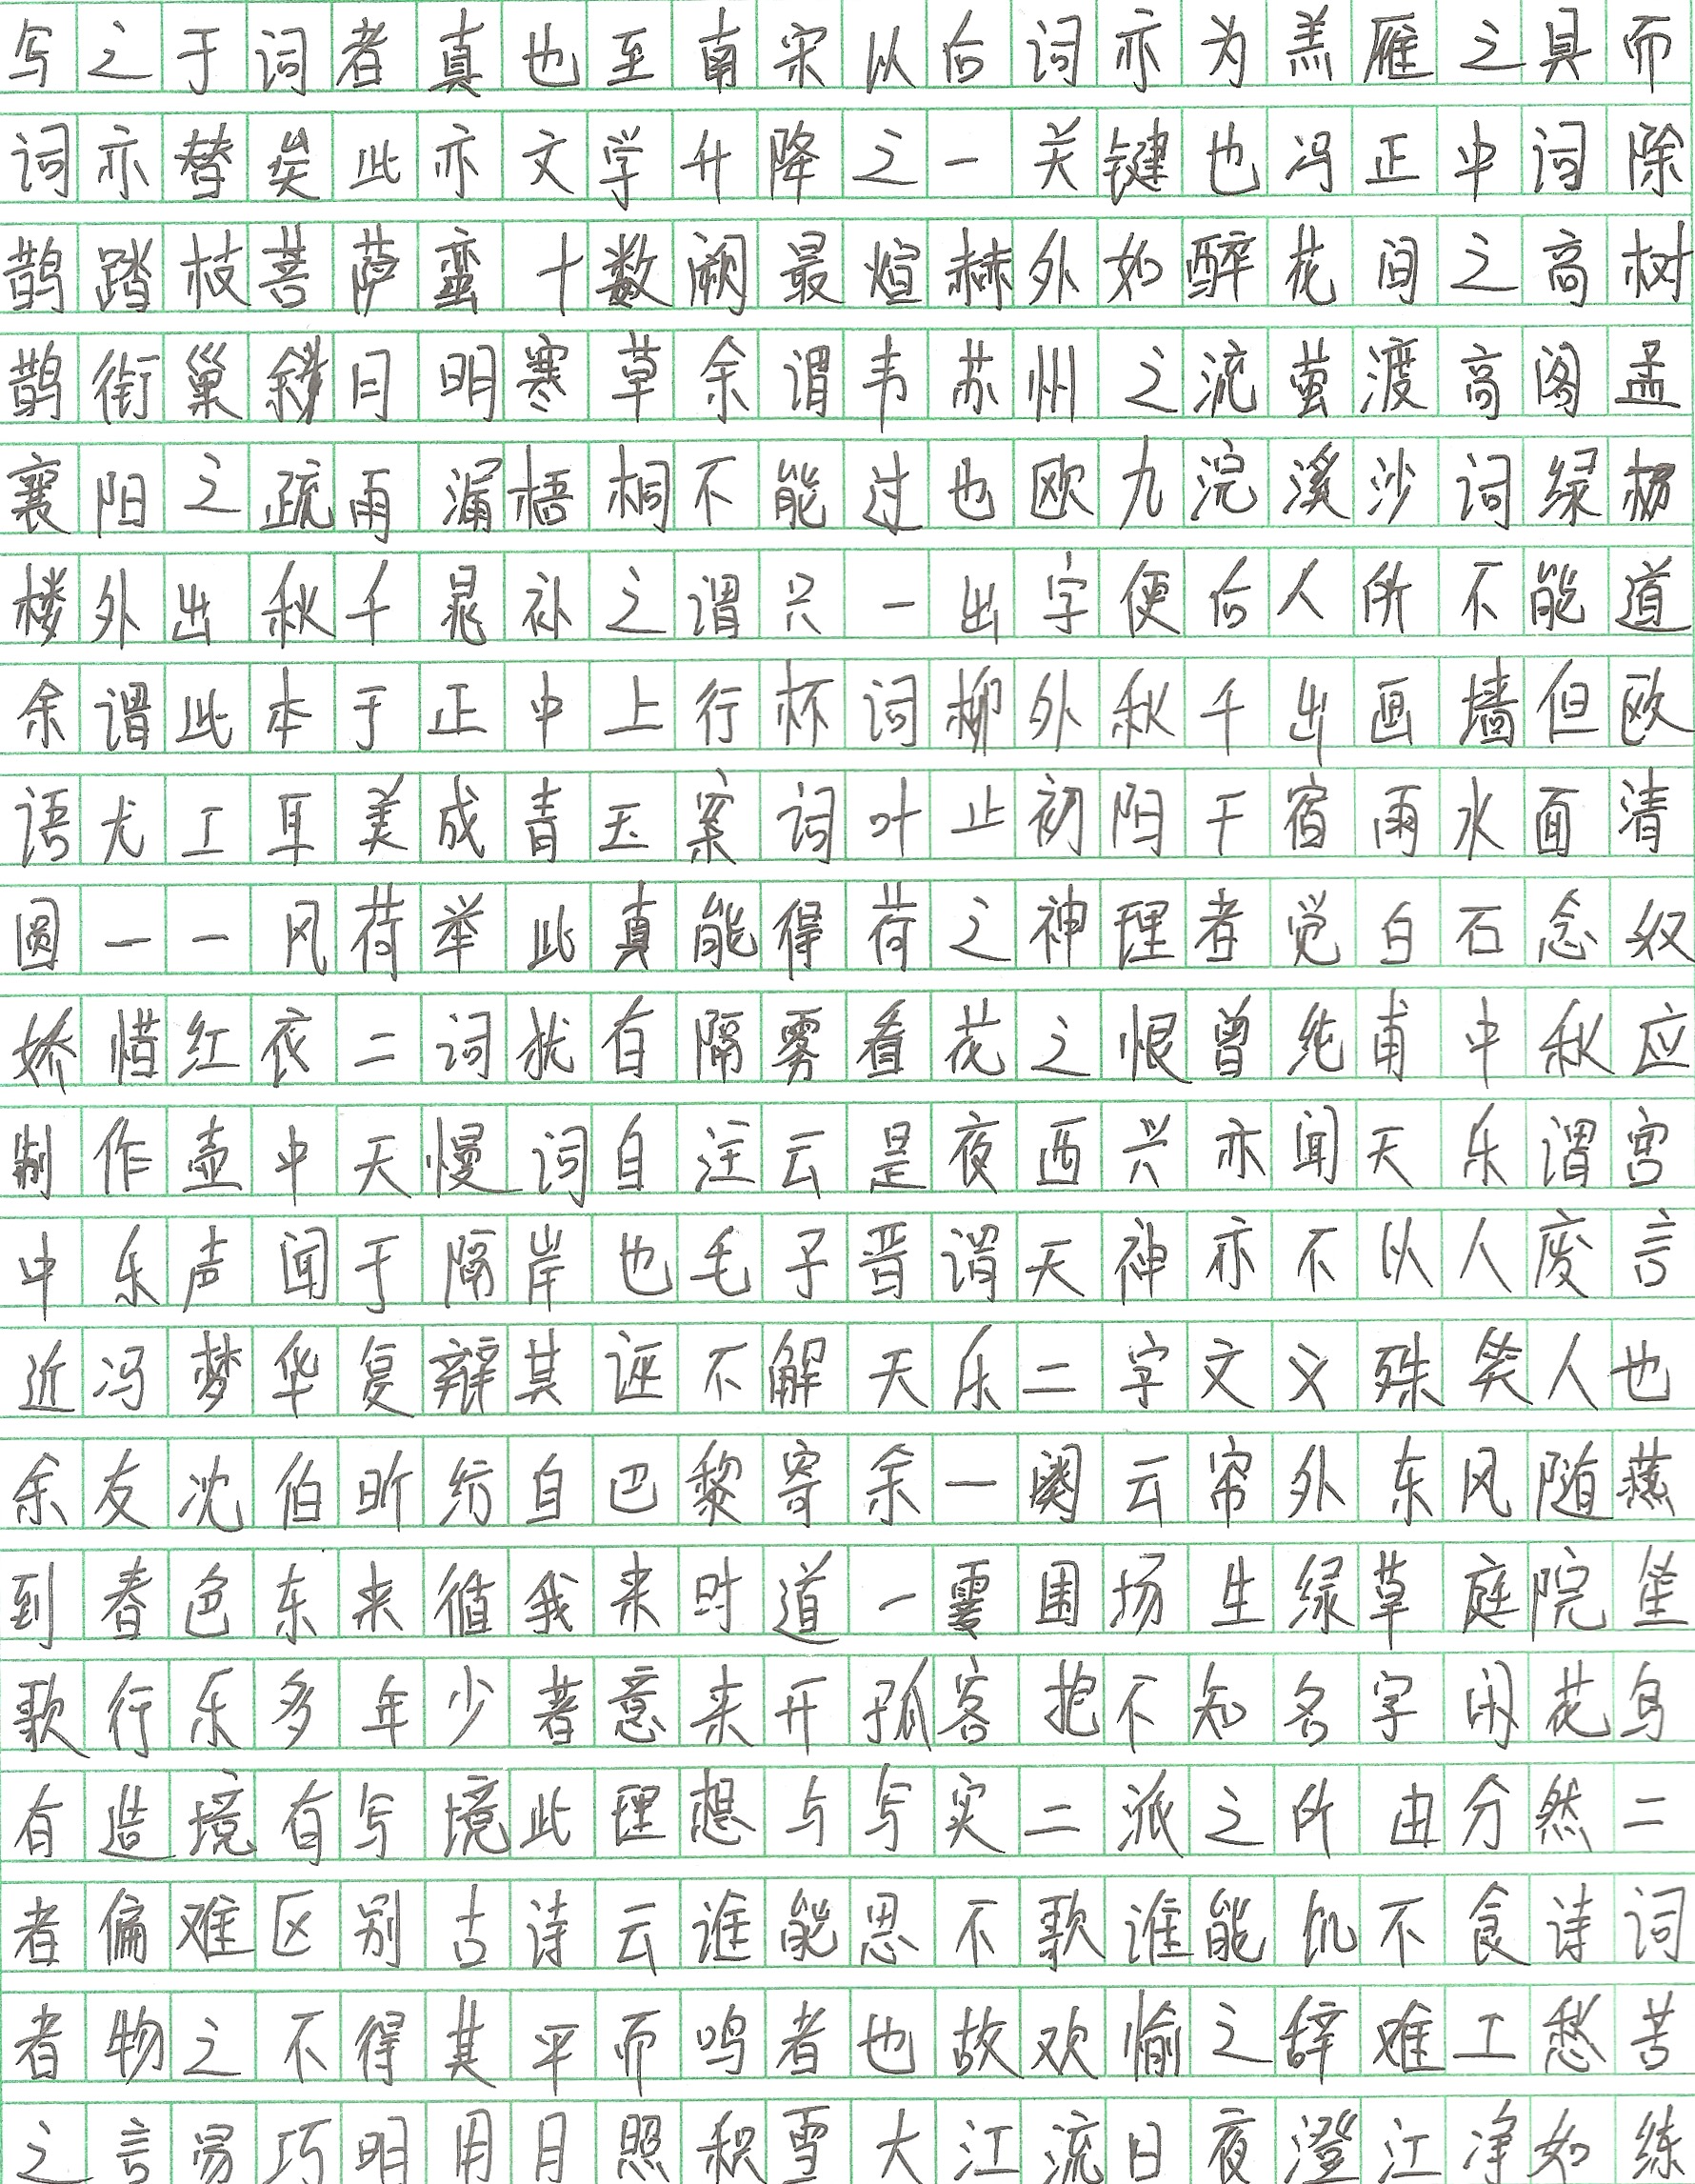 写之于词者真也至南宋以后词亦为羔雁之具而
词亦替矣此亦文学升降之一关键也冯正中词除
鹊踏枝菩萨蛮十数阕最煊赫外如醉花间之高树
鹊衔巢斜月明寒草余谓韦苏州之流萤渡高阁孟
襄阳之疏雨漏梧桐不能过也欧九浣溪沙词绿杨
楼外出秋千晁补之谓只一出字便后人所不能道
余谓此本于正中上行杯词柳外秋千出画墙但欧
语尤工耳美成青玉案词叶上初阳干宿雨水面清
圆一一风荷举此真能得荷之神理者觉白石念奴
娇惜红衣二词犹有隔雾看花之恨曾纯甫中秋应
制作壶中天慢词自注云是夜西兴亦闻天乐谓宫
中乐声闻于隔岸也毛子晋谓天神亦不以人废言
近冯梦华复辩其诬不解天乐二字文义殊笑人也
余友沈伯昕纮自巴黎寄余一阕云帘外东风随燕
到春色东来循我来时道一霎围场生绿草庭院笙
歌行乐多年少著意来开孤客抱不知名字闲花鸟
有造境有写境此理想与写实二派之所由分然二
者偏难区别古诗云谁能思不歌谁能饥不食诗词
者物之不得其平而鸣者也故欢愉之辞难工愁苦
之言易巧明用月照积雪大江流日夜澄江净如练